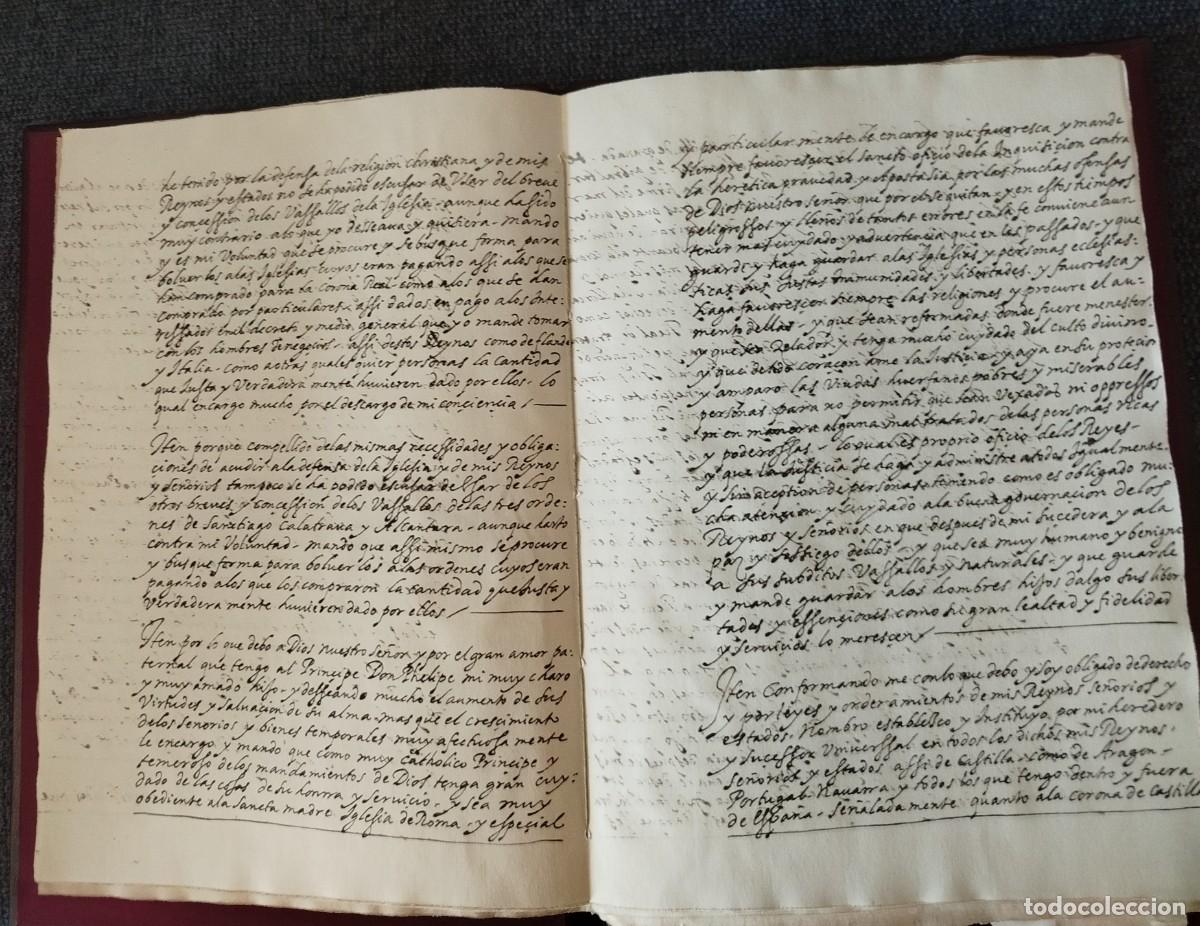 he tenido por la defensa de la religion christiana y de mis
Reynos y estados no se ha podido escusar de Usar del breve
y concession delos Vassallos dela Iglesia - aunque ha sido
muy contrario alo que yo deseava y quisiera - mando
y es mi Voluntad que se procure y se busque forma para
bolverlos alas Iglesias cuyos eran pagando assi alos que se
han comprado para la corona Real como alos que se han
comprado por particulares - assi dados en pago alos Inte-
ressados en el decreto y medio general que yo mande tomar
con los hombres de negocios - assi destos Reynos como de flandes
y Italia - como a otras quales quier personas la cantidad
que Justa y Verdadera mente huvieren dado por ellos - lo
qual encargo mucho por el descargo de mi conciencia /
Iten porque compellido delas mismas necessidades y obliga-
ciones de acudir ala defensa dela Iglesia y de mis Reynos
y señorios tampoco se ha podido escusar de Usar de los
otros breves y concession delos Vassallos de las tres orde-
nes de Sanctiago Calatrava y Alcantara - aunque harto
contra mi Voluntad - mando que assi mismo se procure
y busque forma para bolverlos alas ordenes cuyos eran
pagando alos que los compraron la cantidad que Justa y
Verdadera mente huvieren dado por ellos /
Iten por lo que debo a Dios nuestro señor y por el gran amor pa-
ternal que tengo al Principe Don Phelipe mi muy charo
y muy amado hijo - y desseando mucho el aumento de sus
Virtudes y salvacion de su alma - mas que el crescimiento
delos señorios y bienes temporales muy afectuosa mente
le encargo y mando que como muy Catholico Principe y
temeroso delos mandamientos de Dios tenga gran cuy-
dado de las cosas de su honrra y servicio - y sea muy
obediente ala sancta madre Iglesia de Roma - y especial
y particular mente le encargo que favoresca y mande
siempre favorescer el sancto oficio dela Inquisicion contra
la heretica pravedad y apostasia por las muchas ofensas
de Dios nuestro señor que por el se quitan - y en estos tiempos
peligrossos y llenos de tantos errores en la fe conviene aun
tener mas cuydado y advertencia que en los passados - y que
guarde y haga guardar alas Iglesias y personas eclesias-
ticas sus Justas Inmunidades y libertades - y favoresca y
haga favorescer siempre las religiones y procure el au-
mento dellas - y que sean reformadas donde fuere menester
y que sea zelador y tenga mucho cuydado del culto divino -
y que de todo coraçon ame la Justicia - y aya en su protecion
y amparo las Viudas huerfanos pobres y miserables
personas para no permitir que sean Vexados ni oppressos
ni en manera alguna mal tratados delas personas ricas
y poderossas - lo qual es proprio oficio delos Reyes -
y que la Justicia se haga y administre a todos Igualmente
y sin acception de personas teniendo como es obligado mu-
cha atencion y cuydado ala buena governacion de los
Reynos y señorios en que despues de mi sucedera y ala
paz y sossiego dellos - y que sea muy humano y benigno
a sus subditos Vassallos y naturales - y que guarde
y mande guardar alos hombres hijos dalgo sus liber-
tades y essenciones como su gran lealtad y fidelidad
y servicios lo merescen /
Iten Conformando me con lo que debo y soy obligado de derecho
y por leyes y ordenamientos de mis Reynos señorios y
estados. Nombro establesco y Instituyo por mi heredero
y sucessor Universsal en todos los dichos mis Reynos -
señorios y estados assi de Castilla - como de Aragon -
Portugal - Navarra y todos los que tengo dentro y fuera
de España - señaladamente quanto ala corona de Castilla
todocoleccion